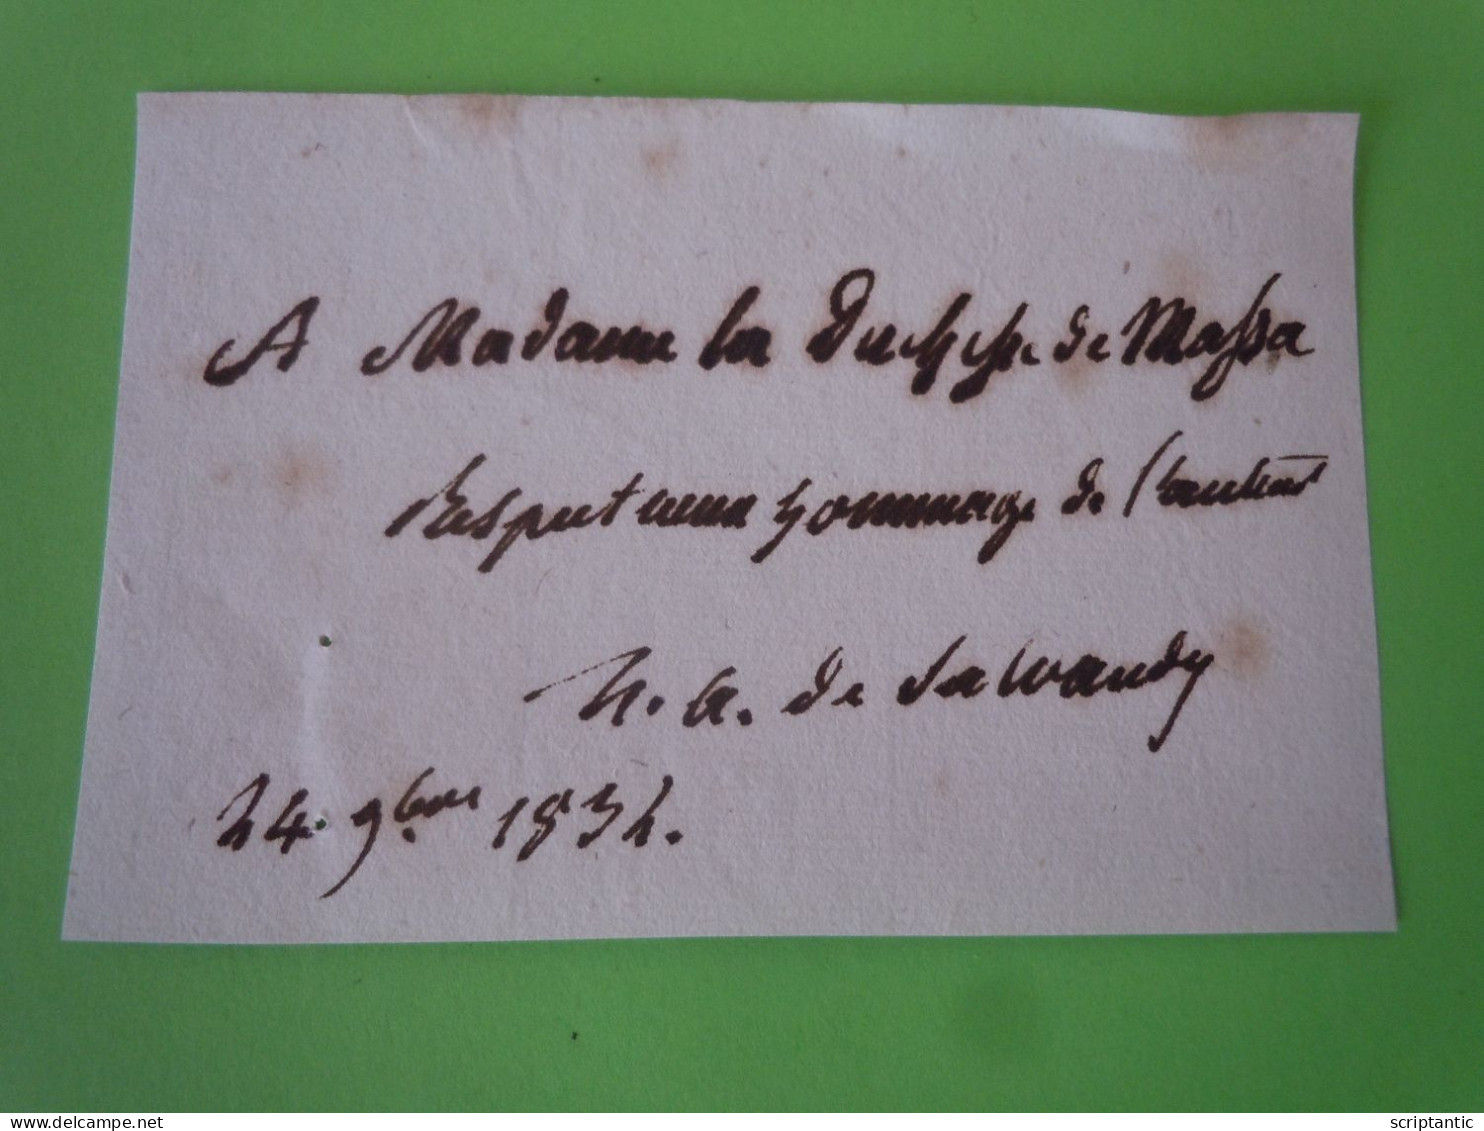 A Madame la Duchesse de Massa
Respectueux hommage de l'auteur
N. A. de Salvandy
24 9bre 1832.
delcampe.net
scriptantic